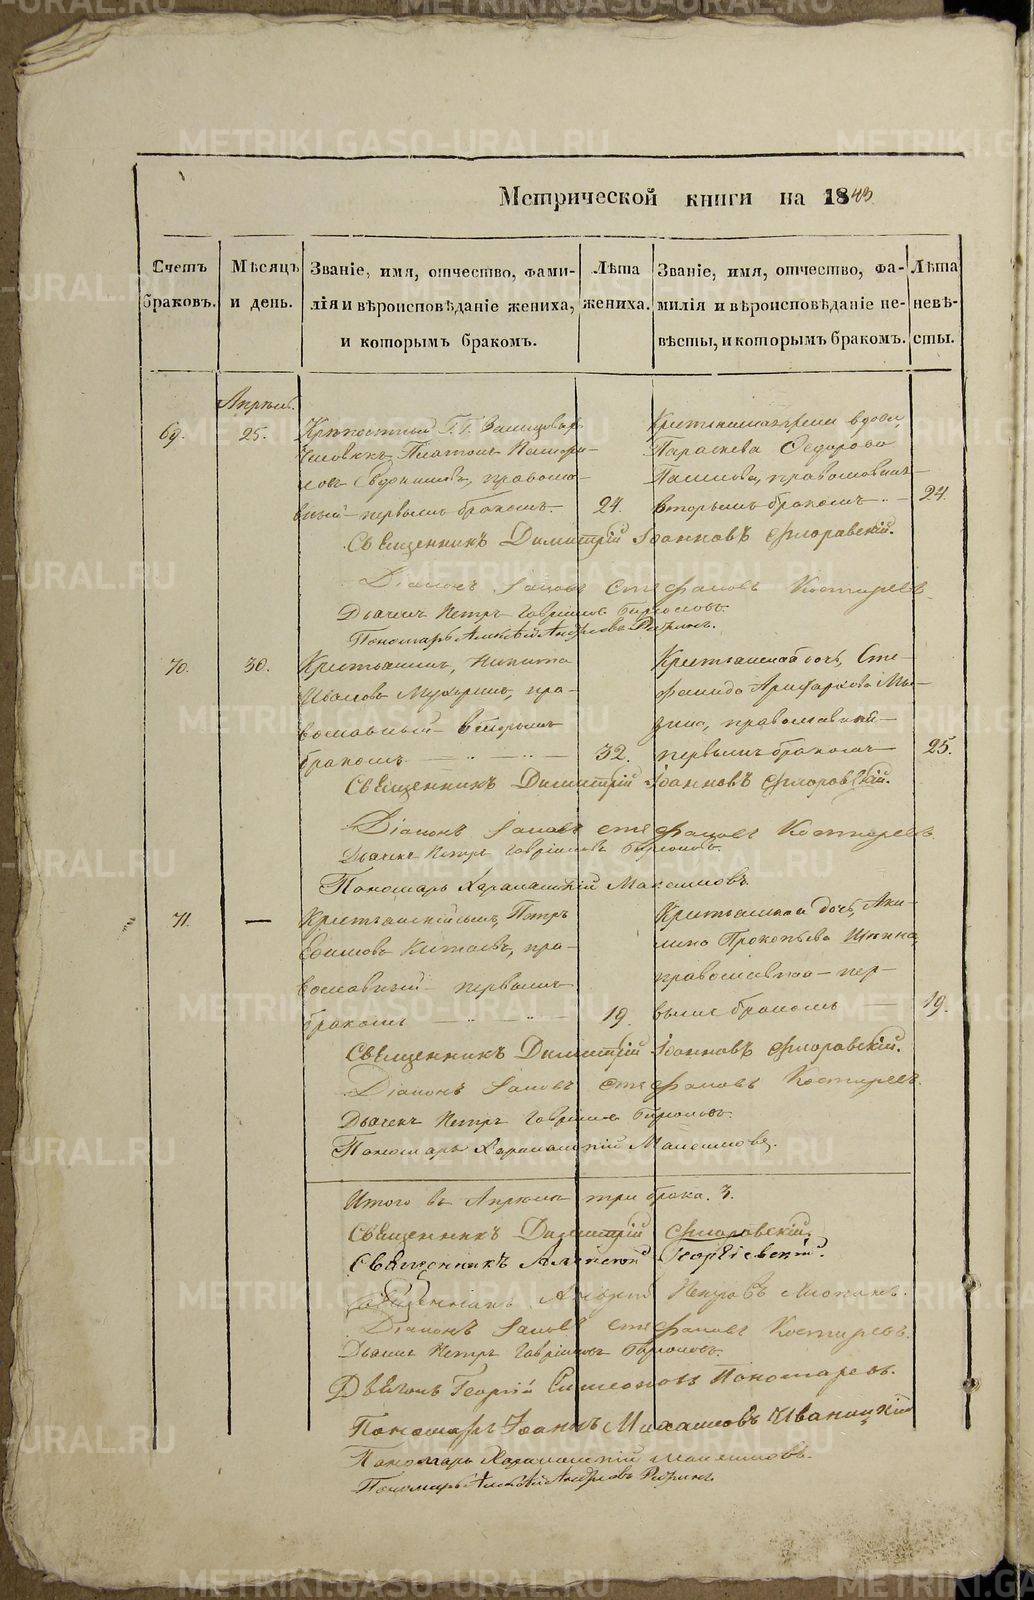 Метрической книги на 1843
Счетъ браковъ.
Мѣсяцъ и день.
Званіе, имя, отчество, фами-
лія и вѣроисповѣданіе жениха,
и которымъ бракомъ.
Лѣта жениха.
Званіе, имя, отчество, фа-
милія и вѣроисповѣданіе не-
вѣсты, и которымъ бракомъ.
Лѣта невѣ-
сты.
Апрѣль.
69.
25.
Крѣпостный Г.Г.
человѣкъ, Платонъ
православ-
ный первымъ бракомъ.
24.
Крестьянская вдова,
Параскева Ѳедорова
православная
вторымъ бракомъ
24.
Священникъ Димитрій Іоанновъ Флоравскій.
Діаконъ Іаковъ Стефановъ Костаревъ
Дьячекъ Петръ Гавріиловъ
Пономарь Алексѣй Андреевъ
70.
30.
Крестьянинъ, Никита
Ивановъ Мухоринъ, пра-
вославный вторымъ
бракомъ
32.
Крестьянская дочь, Сте-
фанида Аристархова
православная
первымъ бракомъ
25.
Священникъ Димитрій Іоанновъ Флоравскій.
Діаконъ Іаковъ Стефановъ Костаревъ
Дьячекъ Петръ Гавріиловъ
Пономарь Харалампій Максимовъ
71.
—
Крестьянскій сынъ, Петръ
Ефимовъ Китаевъ, пра-
вославный первымъ
бракомъ
19.
Крестьянская дочь, Аки-
лина Прокопьева
православная пер-
вымъ бракомъ
19.
Священникъ Димитрій Іоанновъ Флоравскій.
Діаконъ Іаковъ Стефановъ Костаревъ
Дьячекъ Петръ Гавріиловъ
Пономарь Харалампій Максимовъ.
Итого въ Апрѣлѣ три брака. 3.
Священникъ Димитрій Флоравскій.
Священникъ Алексѣй Георгіевскій.
Священникъ Андрей Петровъ
Діаконъ Іаковъ Стефановъ Костаревъ.
Дьячекъ Петръ Гавріиловъ
Дьячекъ Георгій Симеоновъ Пономаревъ.
Пономарь Іоаннъ Михаиловъ Иваницкій
Пономарь Харалампій Максимовъ.
Пономарь Алексѣй Андреевъ
METRIKI.GASO-URAL.RU